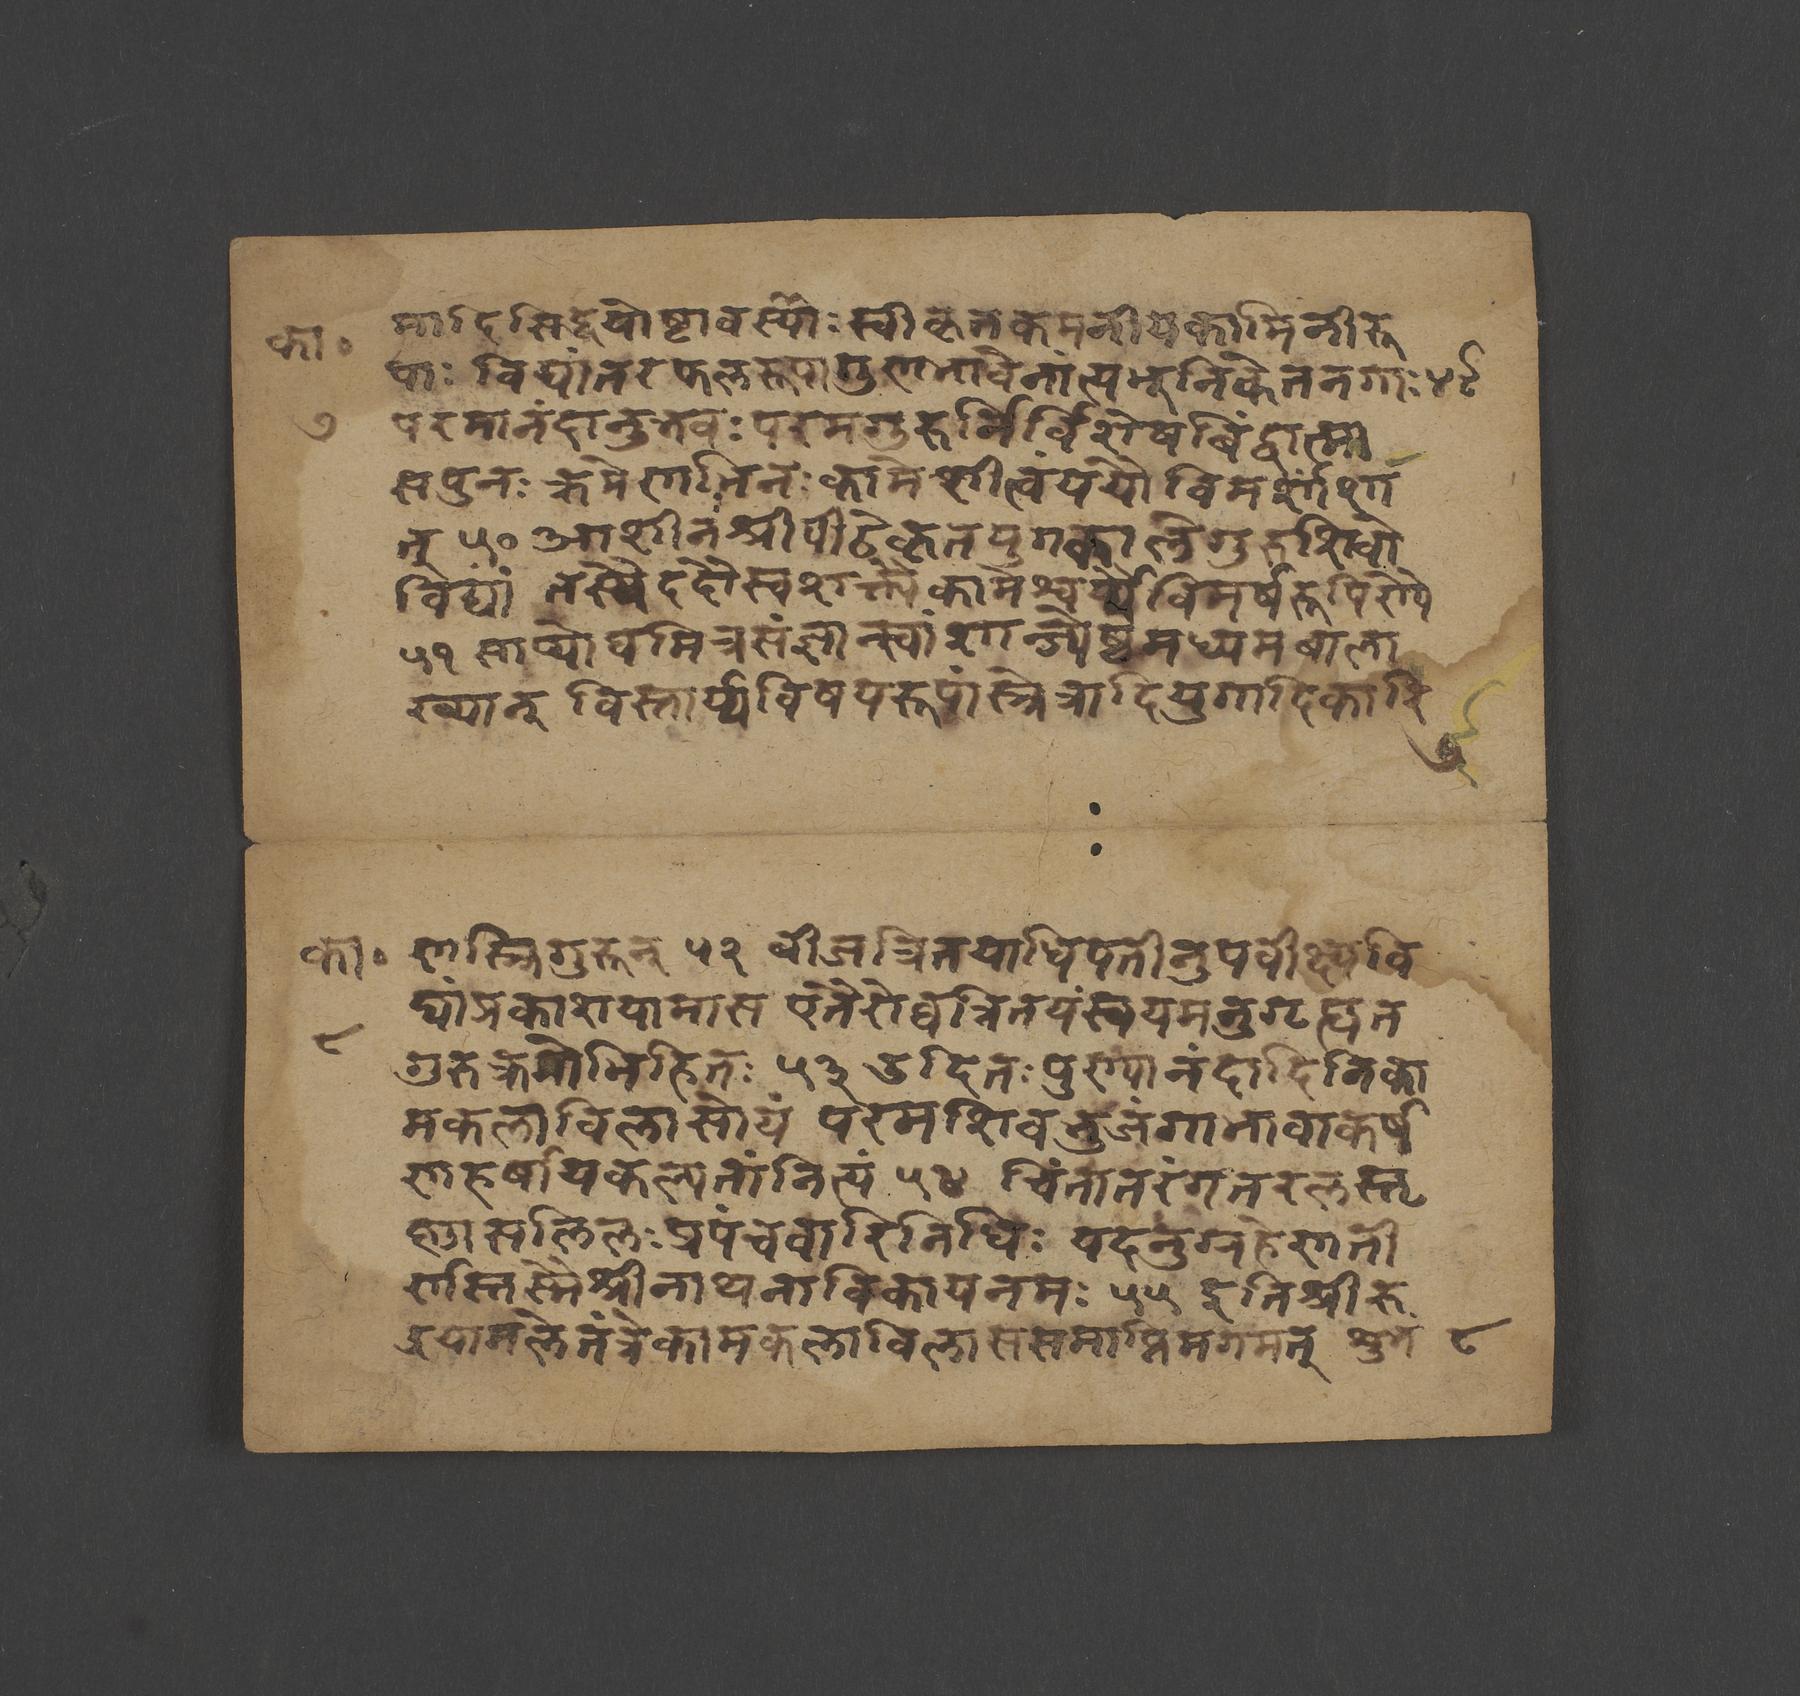 का॰
मादिसिद्धयोष्टावस्यौः स्वीकृतकमनीयकामिनीरू
पाः विद्यांतरफलरूपागुणभावेनांत्यभूनिकेतनगाः ४९
७
परमानंदानुभवः परमगुरुर्निर्विशेषबिंद्वात्मा
सपुनः क्रमेणभिनः कामेशीत्वंययौविमर्शांशा
त् ५० आशीनंश्रीपीठेकृतयुगकालेगुरुशिवो
विद्यां तस्यैददौस्वशक्त्यैकामेश्वर्य्यैविमर्षरूपिण्यै
५१ साप्योघमित्रसंज्ञान्स्वांशान्ज्येष्ठमध्यमबाला
ख्यान् विस्तार्य्यविषयरूपांस्त्रेत्रादियुगादिकारि
७
का॰
णस्त्रिगुरून् ५२ बीजत्रितयाधिपतीनुपवीक्ष्यवि
द्यांप्रकाशयामास एतैरोघत्रितयंस्वयमनुगृह्यत
८
गुरुक्रमोभिहितः ५३ उदितः पुण्यानंदादितिका
मकलाविलासोयं परमशिवभुजंगाभावाकर्ष
णहर्षायकल्पतांनित्यं ५४ चिंतातरंगतरलस्तृ
ह्णासलिलः प्रपंचवारिनिधिः यदनुग्रहेणती
र्णस्तस्मैश्रीनाथनाविकायनमः ५५ इतिश्रीरु
द्रयामलेतंत्रेकामकलाविलाससमाप्तिमगमत् शुभं ८